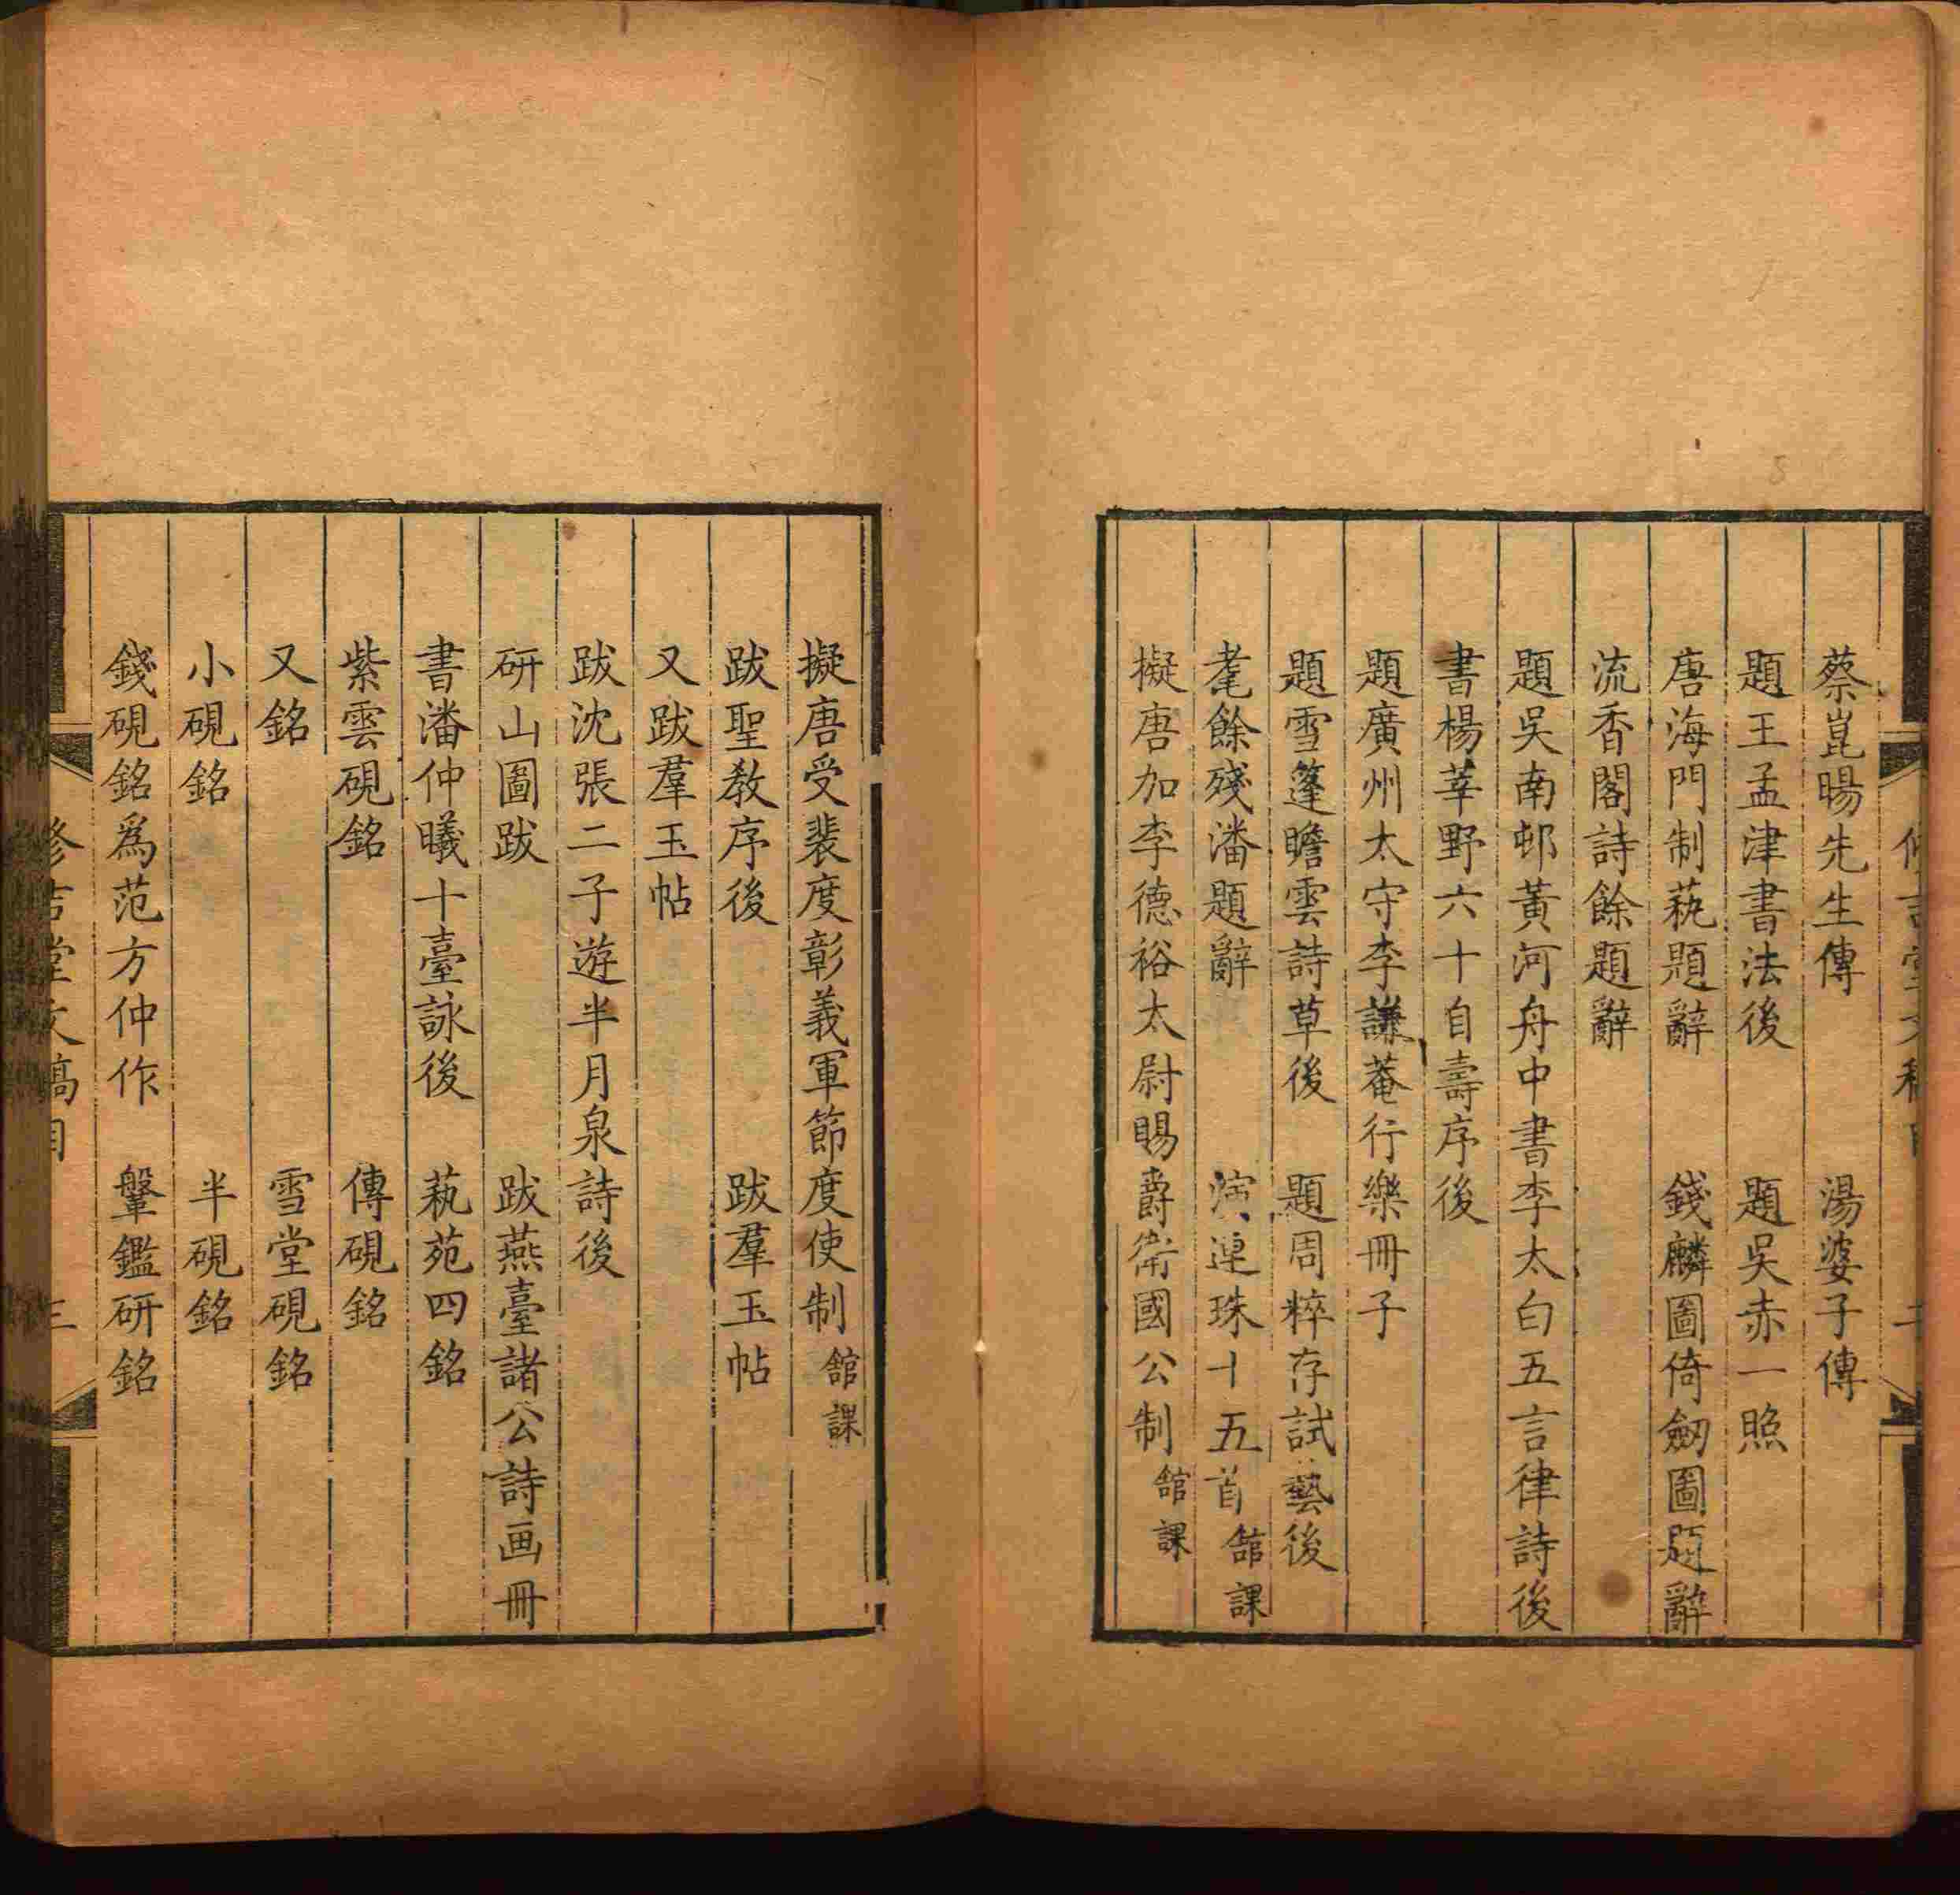 蔡崑暘先生傳　湯婆子傳
題王孟津書法後　題吳赤一照
唐海門制蓺題辭　錢麟圖倚劒圖題辭
流香閣詩餘題辭
題吳南邨黃河舟中書李太白五言律詩後
書楊莘野六十自壽序後
題廣州太守李謙菴行樂冊子
題雪篷瞻雲詩草後　題周粹存試藝後
耄餘殘瀋題辭　演連珠十五首舘課
擬唐加李德裕太尉賜爵衛國公制舘課
擬唐受裴度彰義軍節度使制舘課
跋聖教序後　跋羣玉帖
又跋羣玉帖
跋沈張二子遊半月泉詩後
研山圖跋　跋燕臺諸公詩画冊
書潘仲曦十臺詠後　蓺苑四銘
紫雲硯銘　傳硯銘
又銘　雪堂硯銘
小硯銘　半硯銘
錢硯銘爲范方仲作　鞶鑑研銘
修吉堂文稿目　三